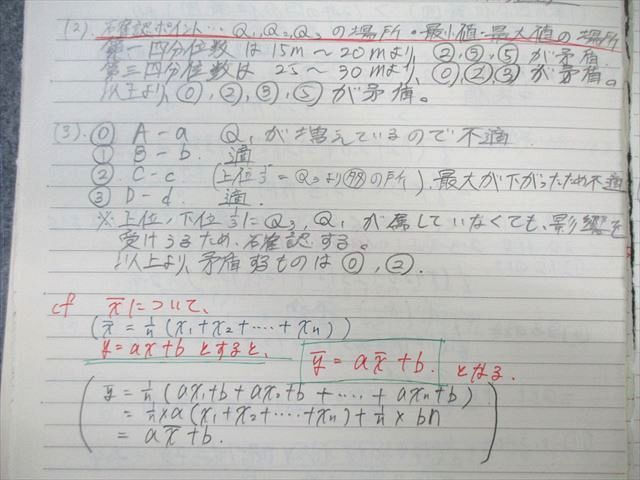 (2). ☆確認ポイント… Q₁, Q₂, Q₃ の場所・最小値・最大値の場所
第一四分位数は 15m ~ 20m より, ②, ③, ⑤ が矛盾.
第三四分位数は 25 ~ 30m より, ⓪, ②, ③ が矛盾。
以上より, ⓪, ②, ③, ⑤ が矛盾。
(3). ⓪ A - a Q₁ が増えているので 不適
① B - b. 適
② C - c (上位 = Q₃ より の所), 最大が下がったため不適
③ D - d. 適.
※ 上位, 下位 に Q₃, Q₁ が属していなくても, 影響を
受けうるため, 確認する。
以上より, 矛盾するものは ⓪, ②.
cf x̄ について、
(x̄ = 1/n (x₁+x₂+‥‥+xₙ))
y = ax+b とすると、 ȳ = ax̄ + b. となる.
(ȳ = 1/n (ax₁+b+ax₂+b +‥‥+ axₙ+b)
= 1/n × a (x₁+x₂+‥‥+xₙ) + 1/n × bn
= ax̄+b.)